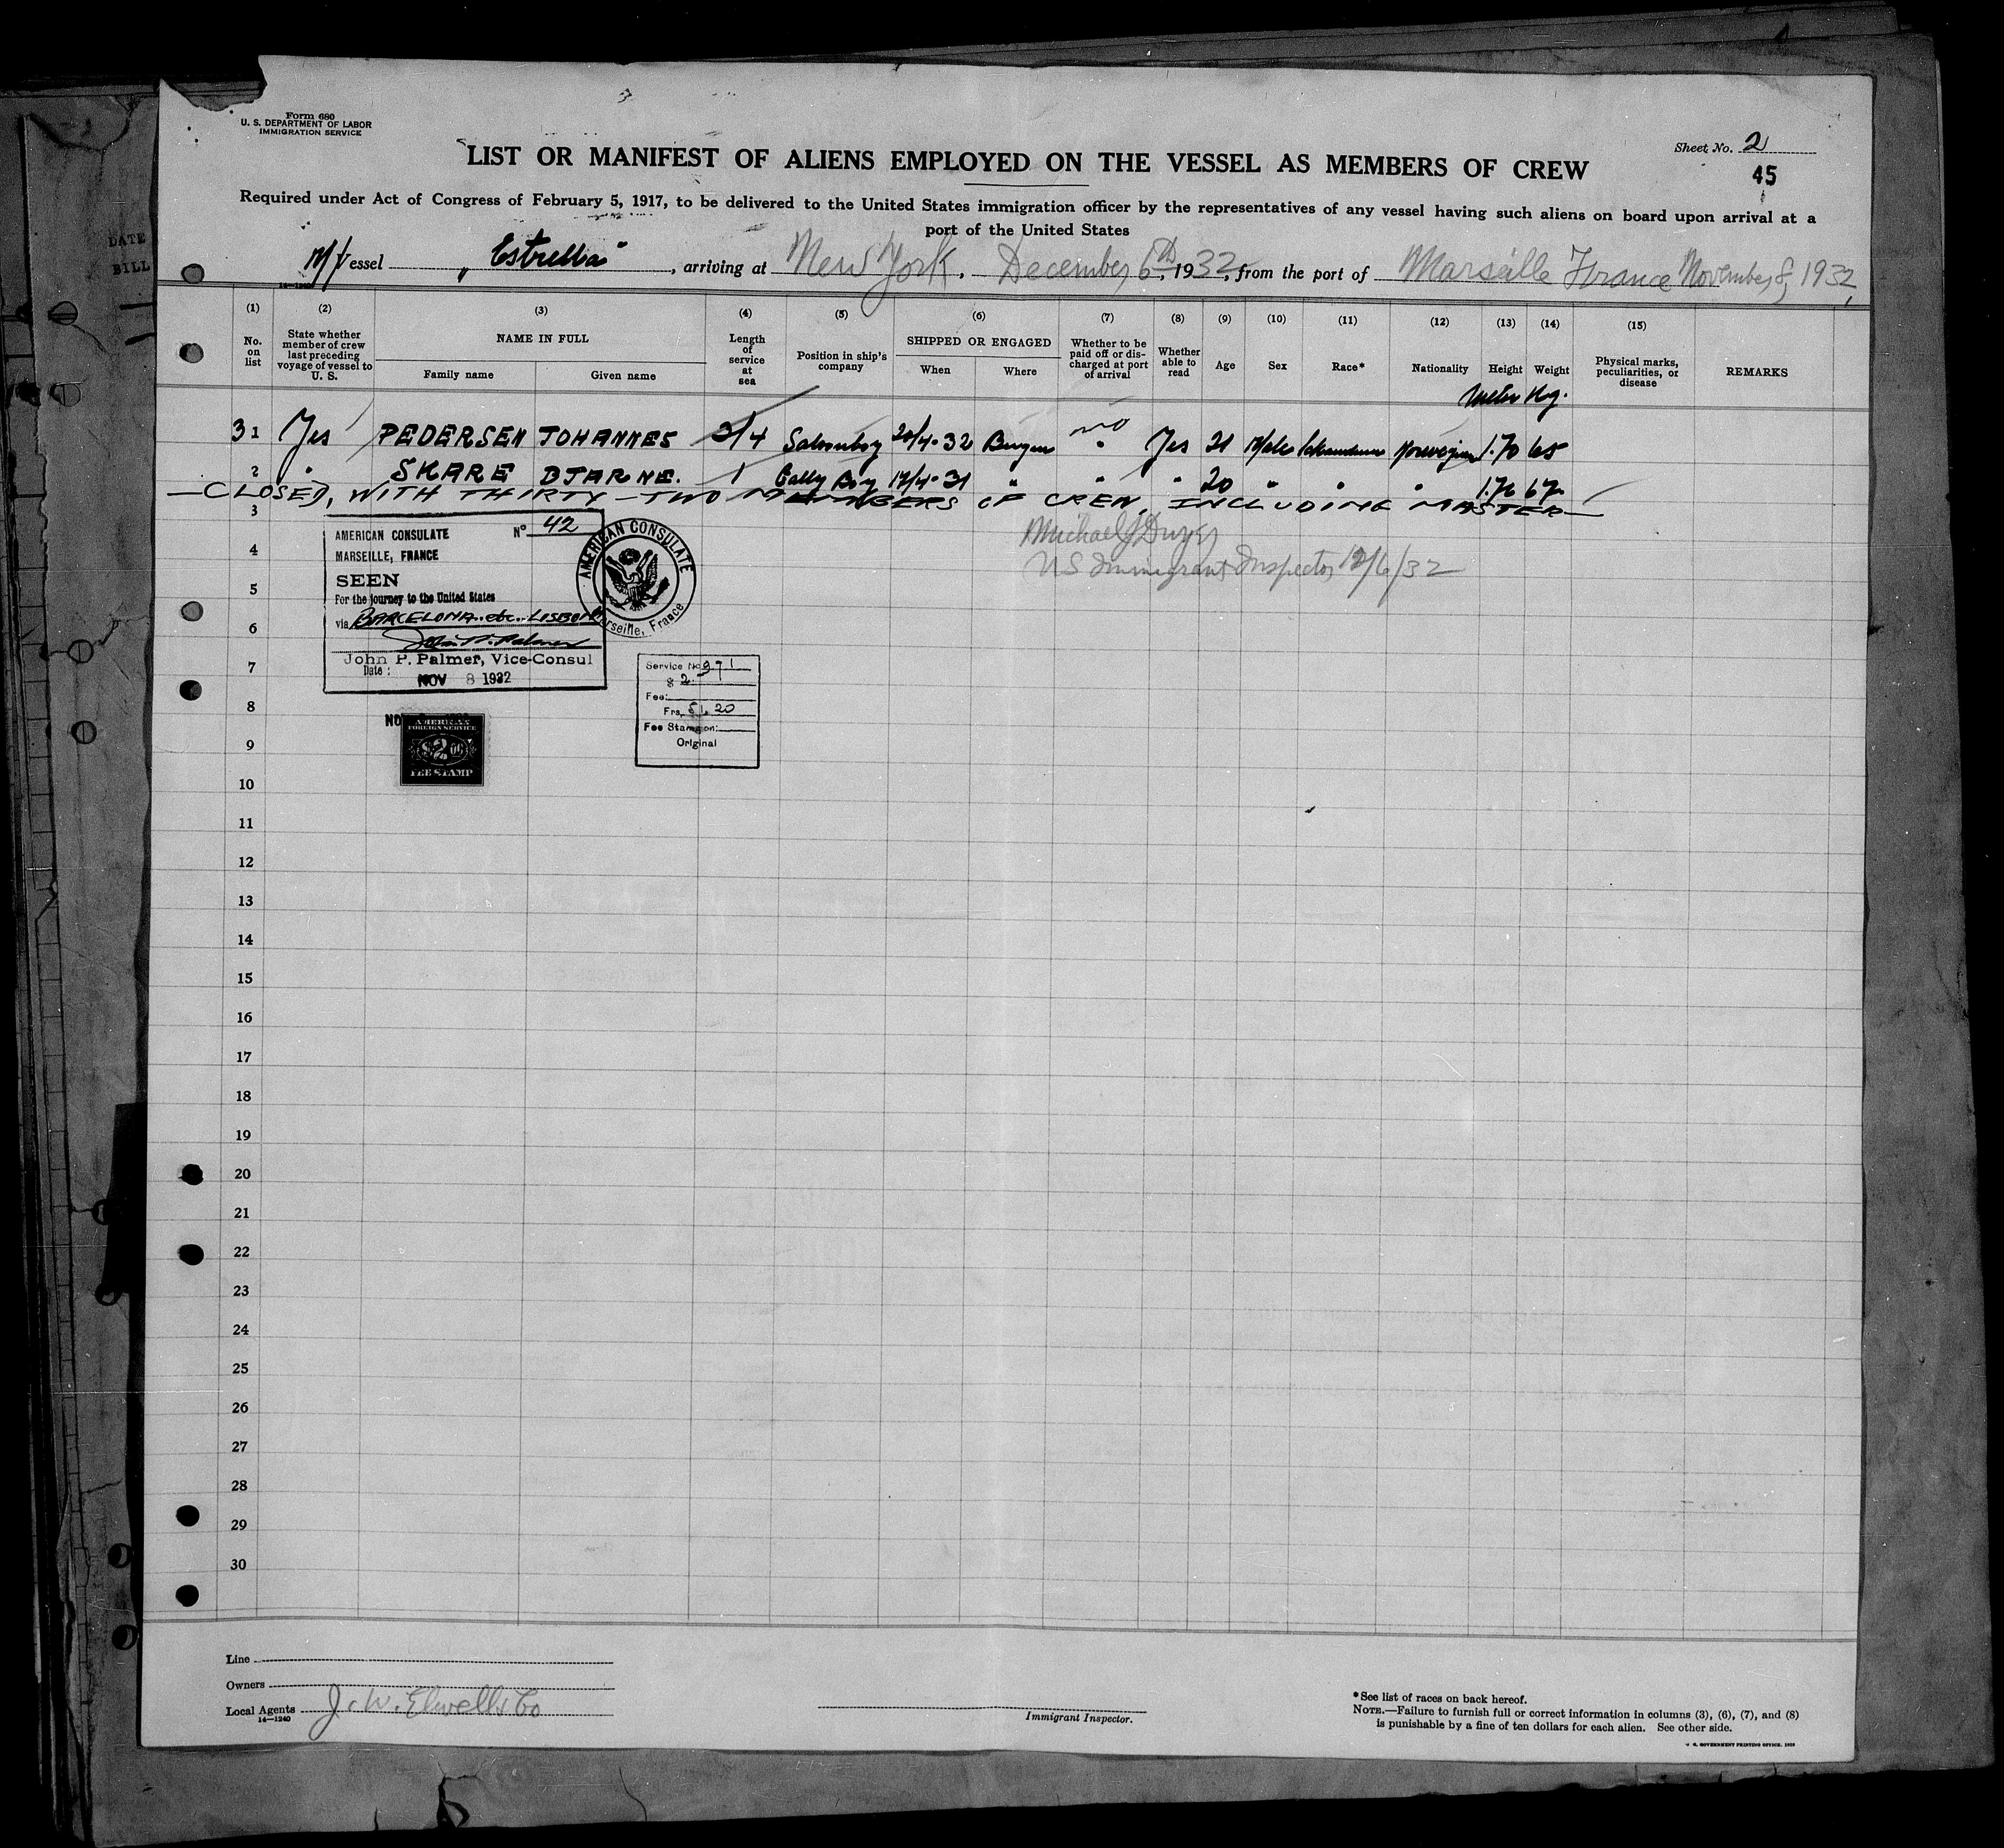 Form 680
U. S. DEPARTMENT OF LABOR
IMMIGRATION SERVICE
Sheet No. 2
45
LIST OR MANIFEST OF ALIENS EMPLOYED ON THE VESSEL AS MEMBERS OF CREW
Required under Act of Congress of February 5, 1917, to be delivered to the United States immigration officer by the representatives of any vessel having such aliens on board upon arrival at a
port of the United States
M/Vessel „Estrella", arriving at New York, December 6th, 1932, from the port of Marseille France November 8, 1932,
14—1240
(1) (2) (3) (4) (5) (6) (7) (8) (9) (10) (11) (12) (13) (14) (15)
No. on list
State whether member of crew last preceding voyage of vessel to U. S.
NAME IN FULL
Family name
Given name
Length of service at sea
Position in ship's company
SHIPPED OR ENGAGED
When
Where
Whether to be paid off or discharged at port of arrival
Whether able to read
Age
Sex
Race*
Nationality
Height
Weight
Physical marks, peculiarities, or disease
REMARKS
Meter Kg.
31 Yes PEDERSEN JOHANNES 3/4 Saloonboy 20/4-32 Bergen no " Yes 21 Male Scandinav Norwegian 1.70 65
2 " SKARE BJARNE. 1 Gally Boy 17/4-31 " " " 20 " " " 1.76 67
—CLOSED, WITH THIRTY-TWO MEMBERS OF CREW, INCLUDING MASTER—
3
Michael J Dwyer
US Immigrant Inspector 12/6/32
AMERICAN CONSULATE
MARSEILLE, FRANCE
Nº 42
SEEN
For the journey to the United States
via BARCELONA. etc. LISBON
John P. Palmer
John P. Palmer, Vice-Consul
Date: NOV 8 1932
AMERICAN CONSULATE
Marseille, France
Service No 971
$ 2.
Fee:
Frs. 51.20
Fee Stamp on:
Original
AMERICAN
FOREIGN SERVICE
$2.00
FEE STAMP
4
5
6
7
8
9
10
11
12
13
14
15
16
17
18
19
20
21
22
23
24
25
26
27
28
29
30
Line
Owners
Local Agents J. W. Elwell & Co
14—1240
Immigrant Inspector.
*See list of races on back hereof.
NOTE.—Failure to furnish full or correct information in columns (3), (6), (7), and (8)
is punishable by a fine of ten dollars for each alien. See other side.
U. S. GOVERNMENT PRINTING OFFICE.
DATE
BILL